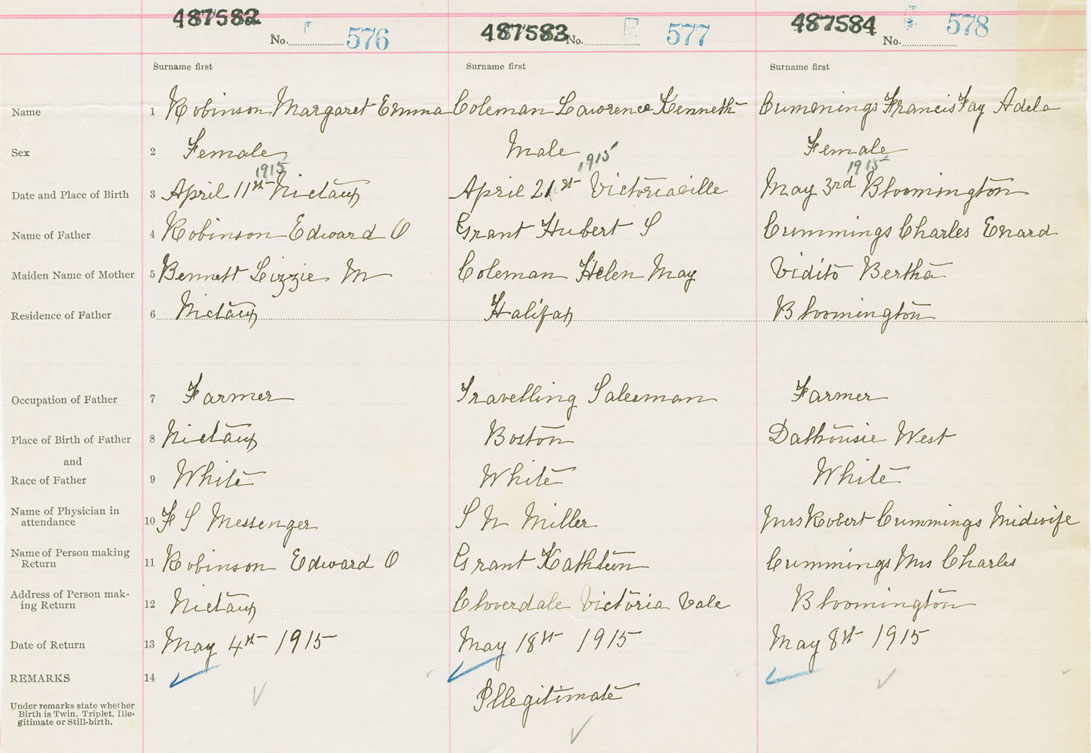 487582 487583 487584
No. 576 No. 577 No. 578
Surname first Surname first Surname first
Name 1 Robinson Margaret Emma Coleman Lawrence Kenneth Cummings Francis Fay Adela
Sex 2 Female Male Female
1915 1915 1915
Date and Place of Birth 3 April 11st Nictaux April 21st Victoriaville May 3rd Bloomington
Name of Father 4 Robinson Edward O Grant Hubert S Cummings Charles Enard
Maiden Name of Mother 5 Bennett Lizzie M Coleman Helen May Vidito Bertha
Residence of Father 6 Nictaux Halifax Bloomington
Occupation of Father 7 Farmer Travelling Salesman Farmer
Place of Birth of Father 8 Nictaux Boston Dalhousie West
and
Race of Father 9 White White White
Name of Physician in
attendance 10 F S Messenger S N Miller Mrs Robert Cummings Midwife
Name of Person making
Return 11 Robinson Edward O Grant Cummings Mrs Charles
Address of Person mak-
ing Return 12 Nictaux Cloverdale Victoria Vale Bloomington
Date of Return 13 May 4st 1915 May 18st 1915 May 8st 1915
REMARKS 14
Illegitimate
Under remarks state whether
Birth is Twin, Triplet, Ille-
gitimate or Still-birth.